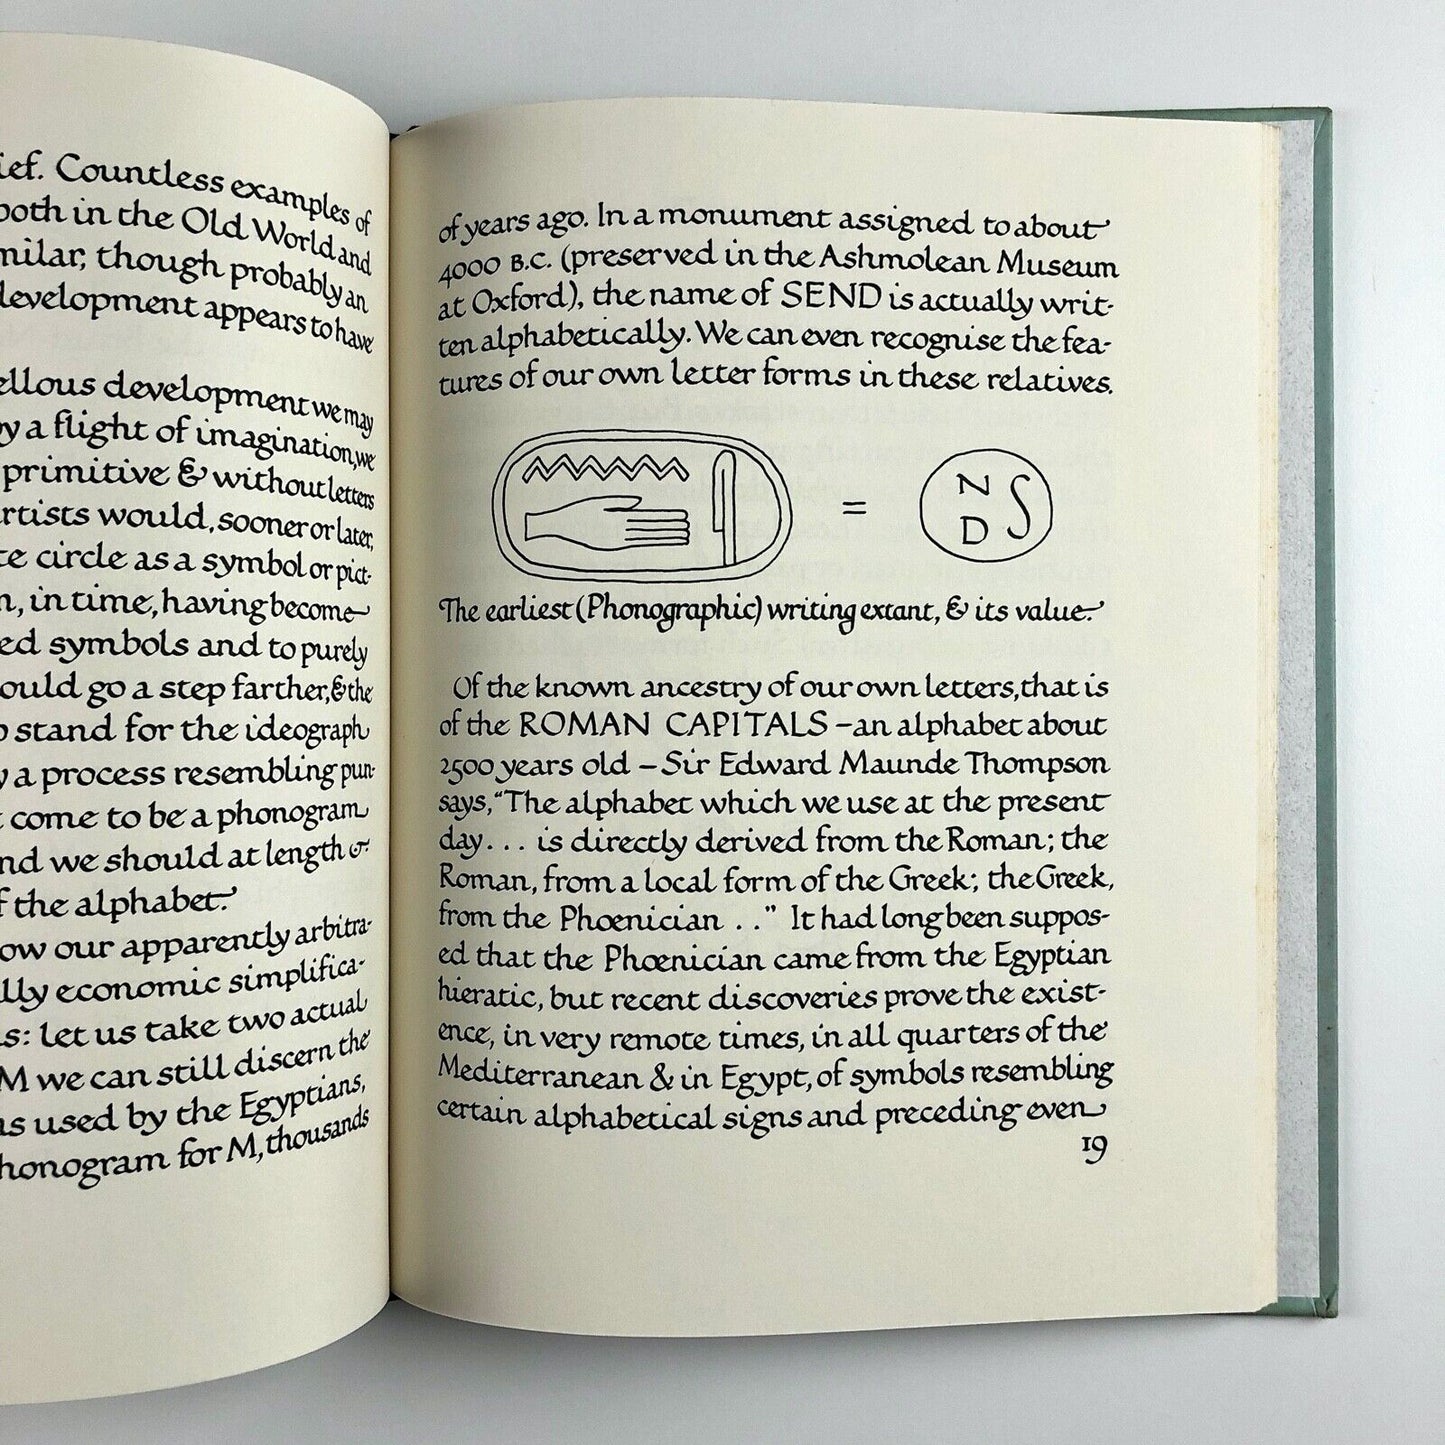 ief. Countless examples of
both in the Old World and
milar, though probably an
development appears to have
ellous development we may
by a flight of imagination, we
primitive & without letters
rtists would, sooner or later,
te circle as a symbol or pict-
n, in time, having become
ed symbols and to purely
ould go a step farther, & the
o stand for the ideograph
y a process resembling pun-
t come to be a phonogram
nd we should at length
f the alphabet.
ow our apparently arbitra-
lly economic simplifica-
s: let us take two actual
M we can still discern the
as used by the Egyptians,
honogram for M, thousands
of years ago. In a monument assigned to about
4000 B.C. (preserved in the Ashmolean Museum
at Oxford), the name of SEND is actually writ-
ten alphabetically. We can even recognise the fea-
tures of our own letter forms in these relatives.
= N S
D
The earliest (Phonographic) writing extant, & its value.
Of the known ancestry of our own letters, that is
of the ROMAN CAPITALS – an alphabet about
2500 years old – Sir Edward Maunde Thompson
says, "The alphabet which we use at the present
day . . . is directly derived from the Roman; the
Roman, from a local form of the Greek; the Greek,
from the Phœnician . ." It had long been suppos-
ed that the Phœnician came from the Egyptian
hieratic, but recent discoveries prove the exist-
ence, in very remote times, in all quarters of the
Mediterranean & in Egypt, of symbols resembling
certain alphabetical signs and preceding even
19